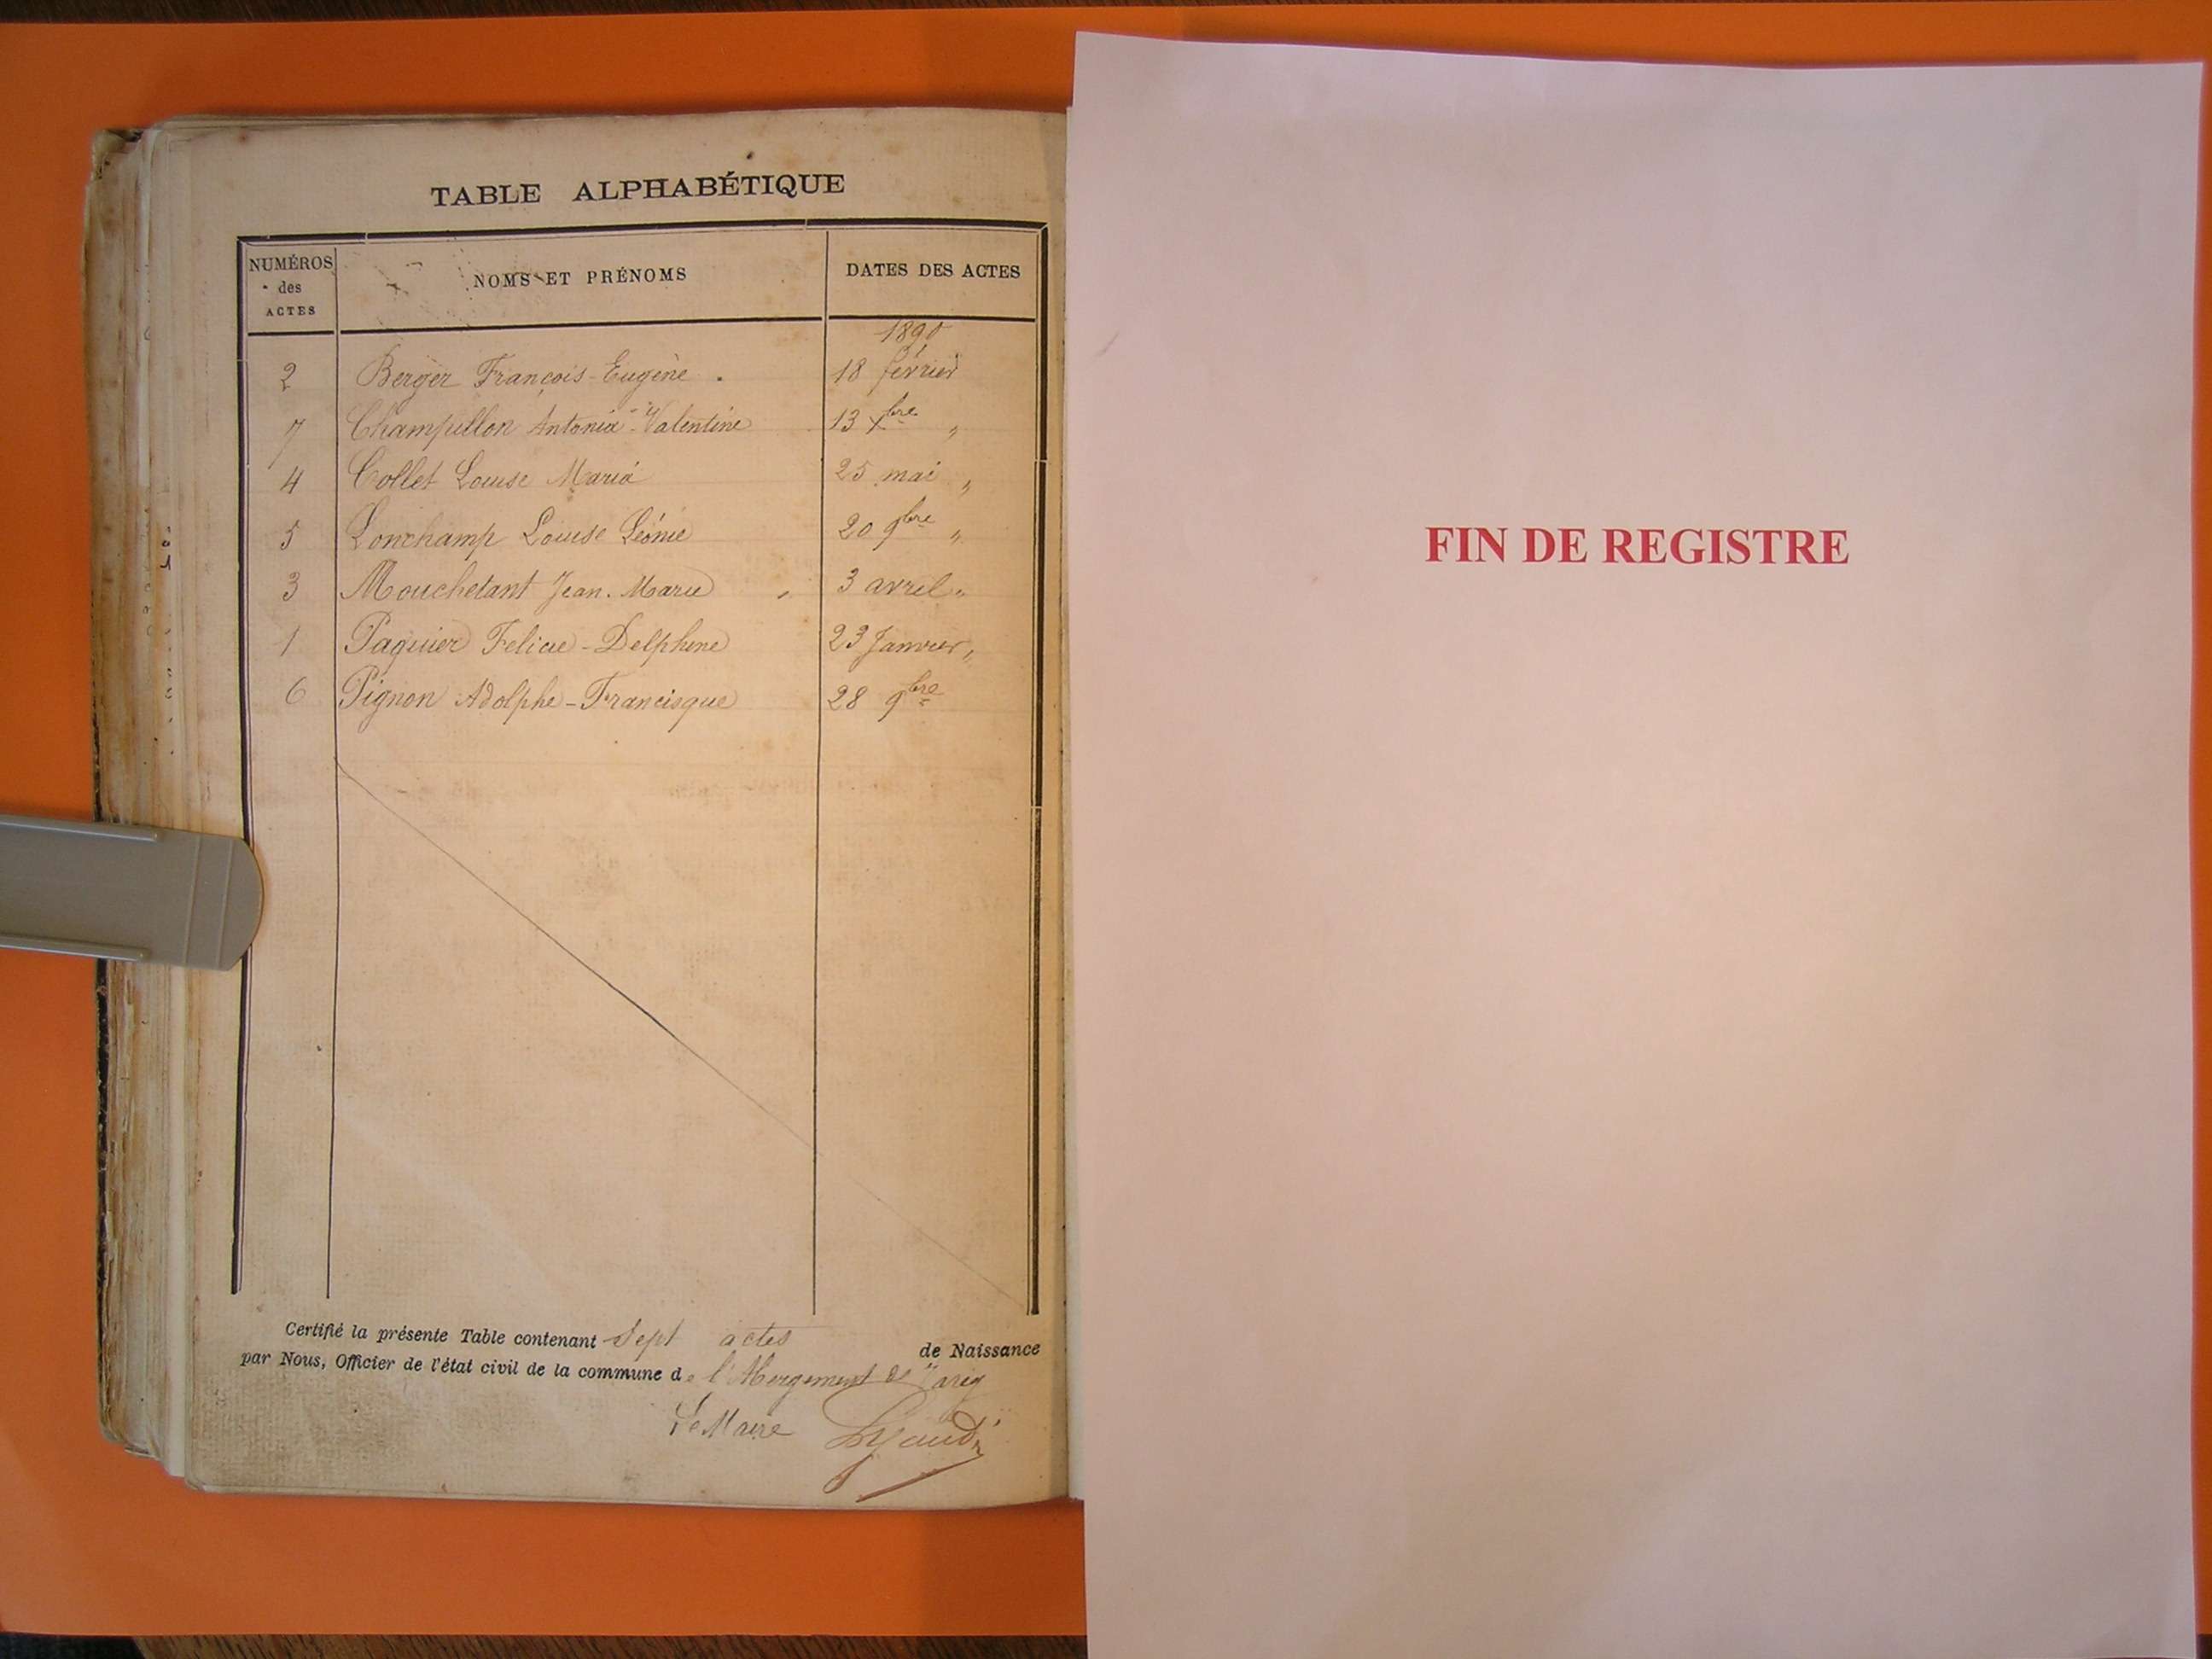 TABLE ALPHABÉTIQUE
NUMÉROS des ACTES NOMS ET PRÉNOMS DATES DES ACTES
1890
2 Berger François-Eugène . 18 février
7 Champillon Antonia-Valentine 13 Xbre "
4 Collet Louise Maria 25 mai "
5 Lonchamp Louise Léonie 20 9bre "
3 Mouchetant Jean. Marie 3 avril "
1 Paquier Felicie-Delphine 23 Janvier "
6 Pignon Adolphe-Francisque 28 9bre
Certifié la présente Table contenant Sept actes de Naissance
par Nous, Officier de l'état civil de la commune de l'Abergement de
Le Maire
FIN DE REGISTRE